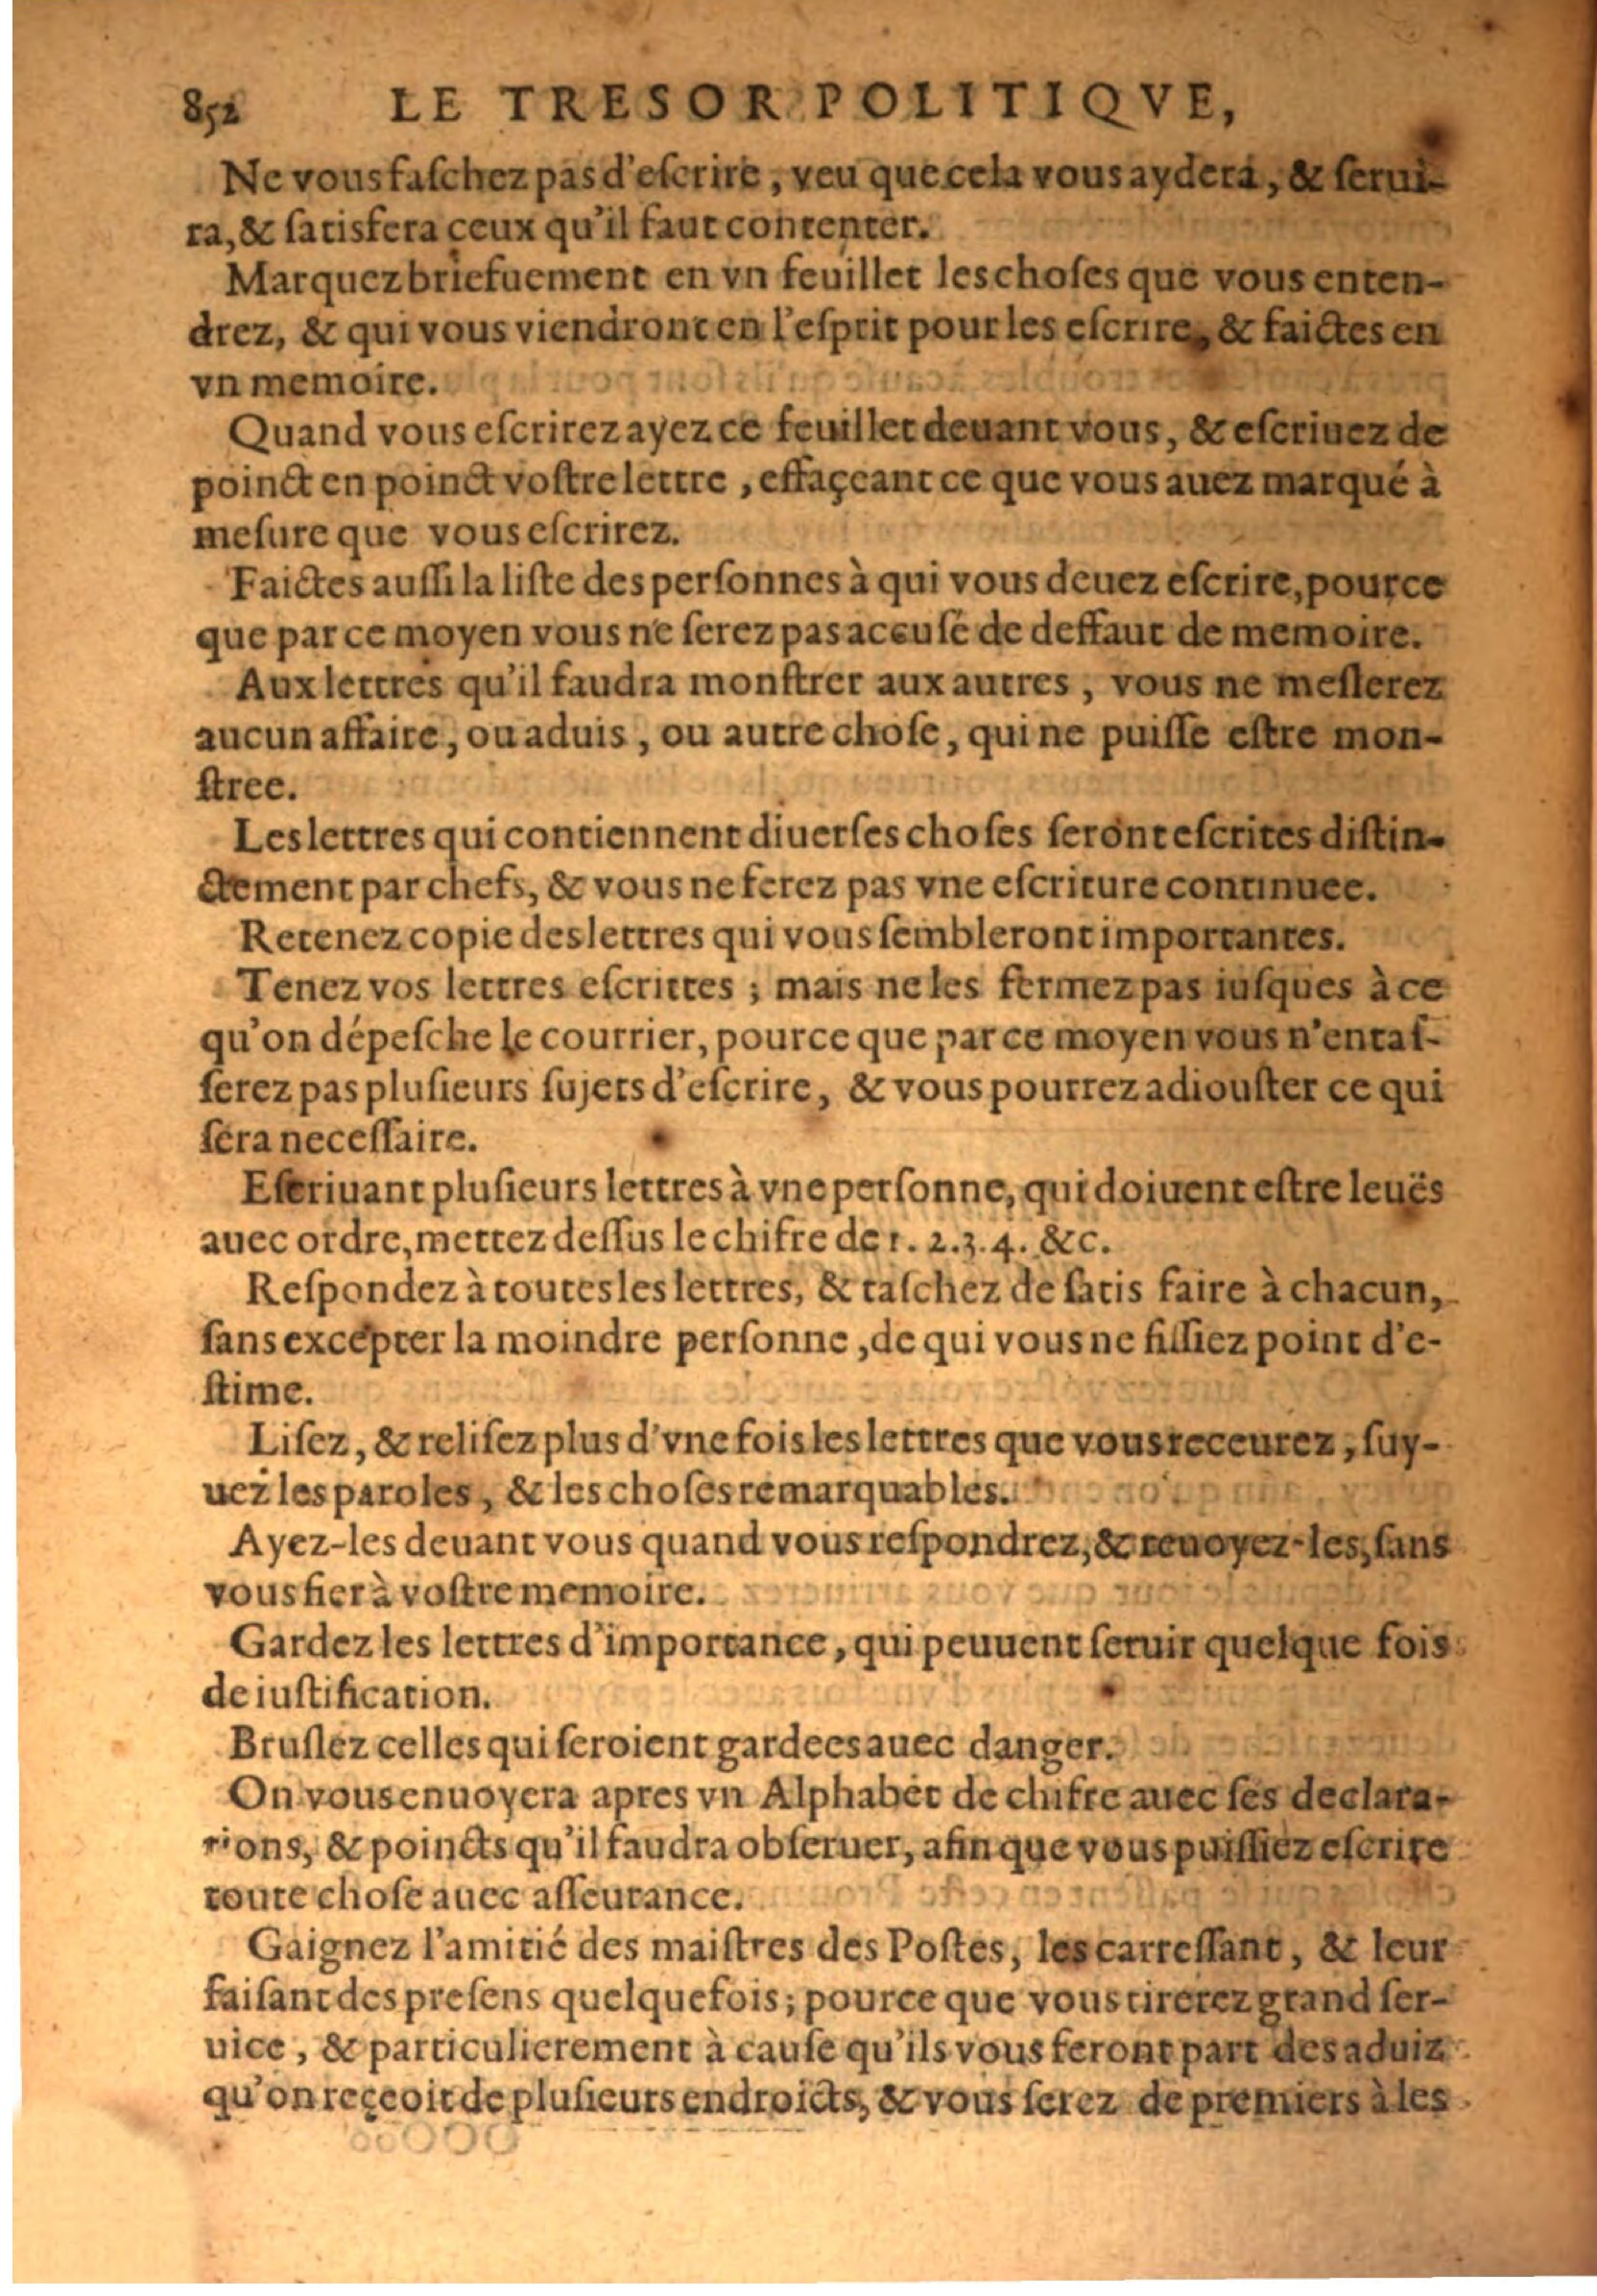 852 LE TRESOR POLITIQVE,
Ne vous faſchez pas d'eſcrire, veu que cela vous aydera, & ſerui-
ra, & ſatisfera ceux qu'il faut contenter.
Marquez briefuement en vn feuillet les choſes que vous enten-
drez, & qui vous viendront en l'eſprit pour les eſcrire, & faictes en
vn memoire.
Quand vous eſcrirez ayez ce feuillet deuant vous, & eſcriuez de
poinct en poinct voſtre lettre, effaçeant ce que vous auez marqué à
meſure que vous eſcrirez.
Faictes auſſi la liſte des perſonnes à qui vous deuez eſcrire, pource
que par ce moyen vous ne ſerez pas accuſé de deffaut de memoire.
Aux lettres qu'il faudra monſtrer aux autres, vous ne meſlerez
aucun affaire, ou aduis, ou autre choſe, qui ne puiſſe eſtre mon-
ſtree.
Les lettres qui contiennent diuerſes choſes ſeront eſcrites diſtin-
ctement par chefs, & vous ne ferez pas vne eſcriture continuee.
Retenez copie des lettres qui vous ſembleront importantes.
Tenez vos lettres eſcrittes ; mais ne les fermez pas iuſques à ce
qu'on dépeſche le courrier, pource que par ce moyen vous n'entaſ-
ſerez pas pluſieurs ſujets d'eſcrire, & vous pourrez adiouſter ce qui
ſera neceſſaire.
Eſcriuant pluſieurs lettres à vne perſonne, qui doiuent eſtre leuës
auec ordre, mettez deſſus le chifre de 1. 2. 3. 4. &c.
Reſpondez à toutes les lettres, & taſchez de ſatis faire à chacun,
ſans excepter la moindre perſonne, de qui vous ne fiſſiez point d'e-
ſtime.
Liſez, & reliſez plus d'vne fois les lettres que vous receurez, ſuy-
uez les paroles, & les choſes remarquables.
Ayez-les deuant vous quand vous reſpondrez, & reuoyez-les, ſans
vous fier à voſtre memoire.
Gardez les lettres d'importance, qui peuuent ſeruir quelque fois
de iuſtification.
Bruſlez celles qui ſeroient gardees auec danger.
On vous enuoyera apres vn Alphabet de chifre auec ſes declara-
tions, & poincts qu'il faudra obſeruer, afin que vous puiſſiez eſcrire
toute choſe auec aſſeurance.
Gaignez l'amitié des maiſtres des Poſtes, les carreſſant, & leur
faiſant des preſens quelquefois ; pource que vous tirerez grand ſer-
uice, & particulierement à cauſe qu'ils vous feront part des aduiz
qu'on reçeoit de pluſieurs endroicts, & vous ſerez de premiers à les